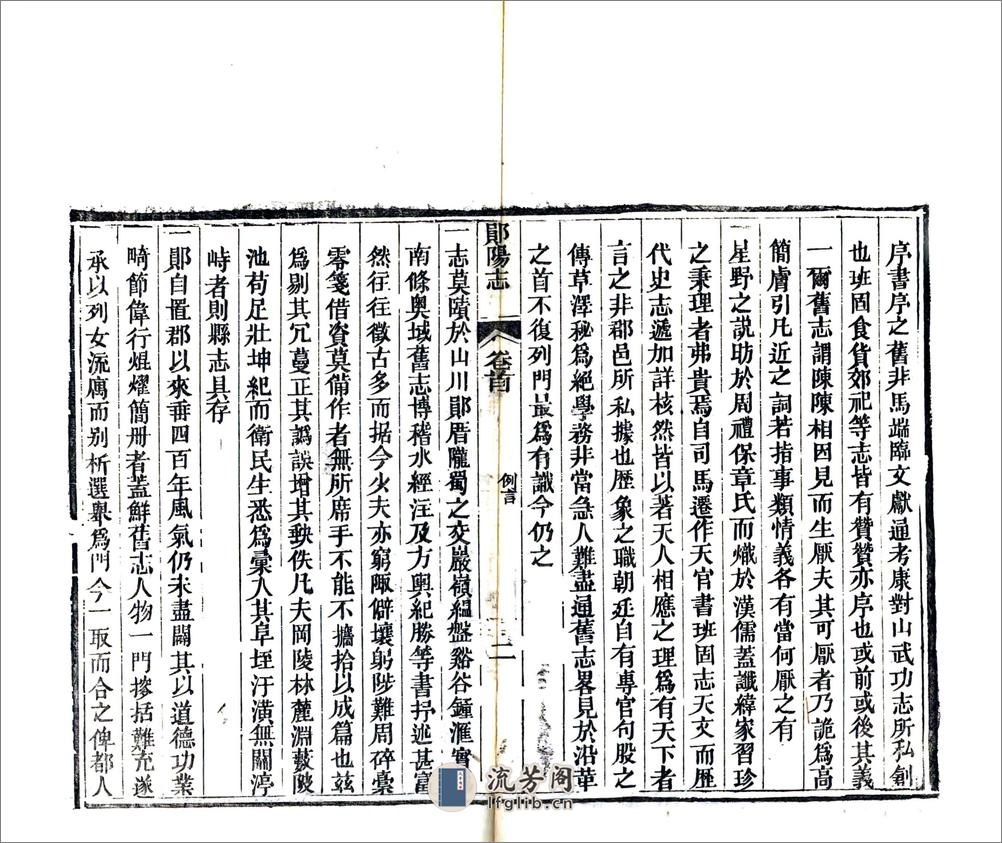 序書序之舊非馬端臨文獻通考康對山武功志所私創
也班固食貨郊祀等志皆有贊贊亦序也或前或後其義
一爾舊志謂陳陳相因見而生厭夫其可厭者乃詭爲高
簡膚引凡近之詞若指事類情義各有當何厭之有
星野之說昉於周禮保章氏而熾於漢儒蓋讖緯家習珍
之秉理者弗貴焉自司馬遷作天官書班固志天文而歷
代史志遞加詳核然皆以著天人相應之理爲有天下者
言之非郡邑所私據也歷象之職朝廷自有專官句股之
傳草澤秘爲絕學務非當急人難盡通舊志畧見於沿革
之首不復列門最爲有識今仍之
鄖陽志 卷首 例言 二
一志莫賾於山川鄖厝隴蜀之交巖嶺緼盤谿谷鍾滙實
南條奧域舊志博稽水經注及方輿紀勝等書抒述甚富
然往往徵古多而据今少夫亦窮陬僻壤躬陟難周碎橐
零箋借資莫備作者無所席手不能不擔拾以成篇也茲
爲剔其冗蔓正其譌誤增其軼佚凡夫岡陵林麓淵藪陂
池苟足壯坤紀而衛民生悉爲彙入其阜垤汙潢無關渟
峙者則縣志具存
一鄖自置郡以來垂四百年風氣仍未盡闢其以道德功業
畸節偉行焜燿簡冊者蓋鮮舊志人物一門摉括難充遂
承以列女流寓而别析選舉爲門今一取而合之俾都人
流芳阁
lfglib.cn